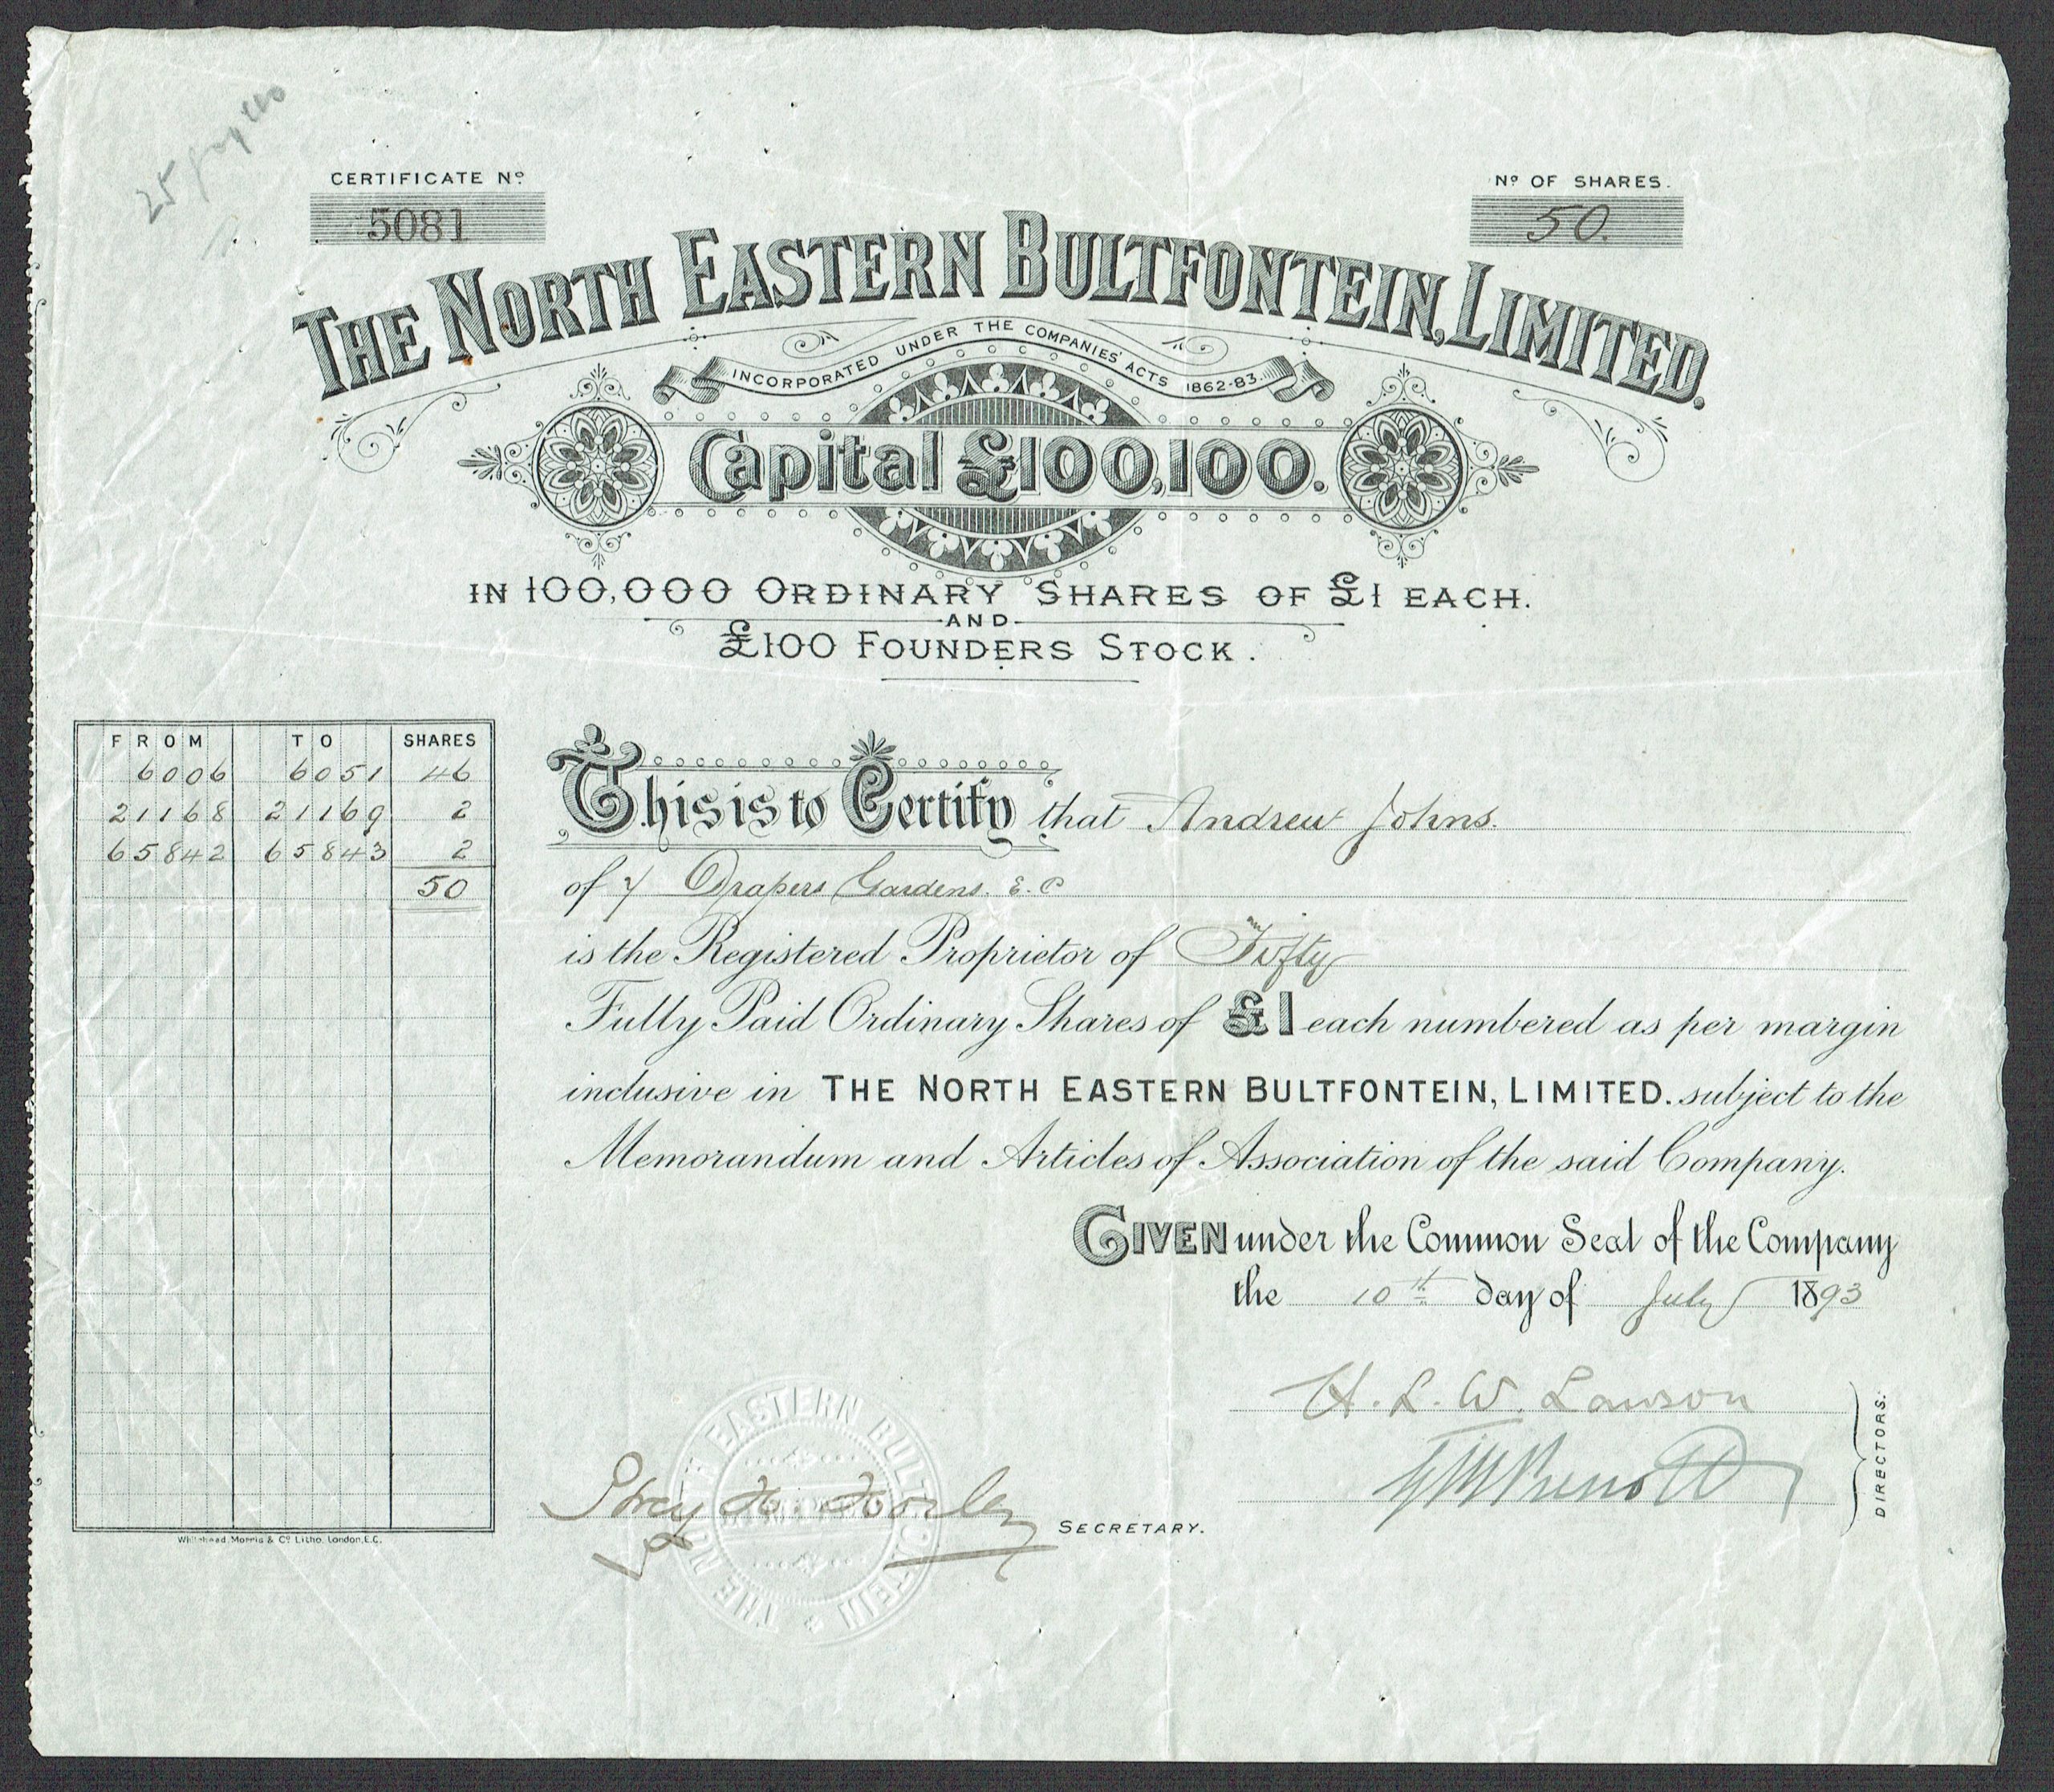 CERTIFICATE Nº
5081
Nº OF SHARES.
50.
THE NORTH EASTERN BULTFONTEIN, LIMITED.
INCORPORATED UNDER THE COMPANIES' ACTS 1862-83.
Capital £100,100.
IN 100,000 ORDINARY SHARES OF £1 EACH.
AND
£100 FOUNDERS STOCK.
FROM TO SHARES
6006 6051 46
21168 21169 2
65842 65843 2
50
This is to Certify that Andrew Johns.
of 7 Drapers Gardens. E.C
is the Registered Proprietor of Fifty
Fully Paid Ordinary Shares of £1 each numbered as per margin
inclusive in THE NORTH EASTERN BULTFONTEIN, LIMITED. subject to the
Memorandum and Articles of Association of the said Company.
GIVEN under the Common Seal of the Company
the 10th day of July 1893
H. L. W. Lawson
DIRECTORS.
SECRETARY.
THE NORTH EASTERN BULTFONTEIN
Whitehead, Morris & Cº Litho. London, E.C.